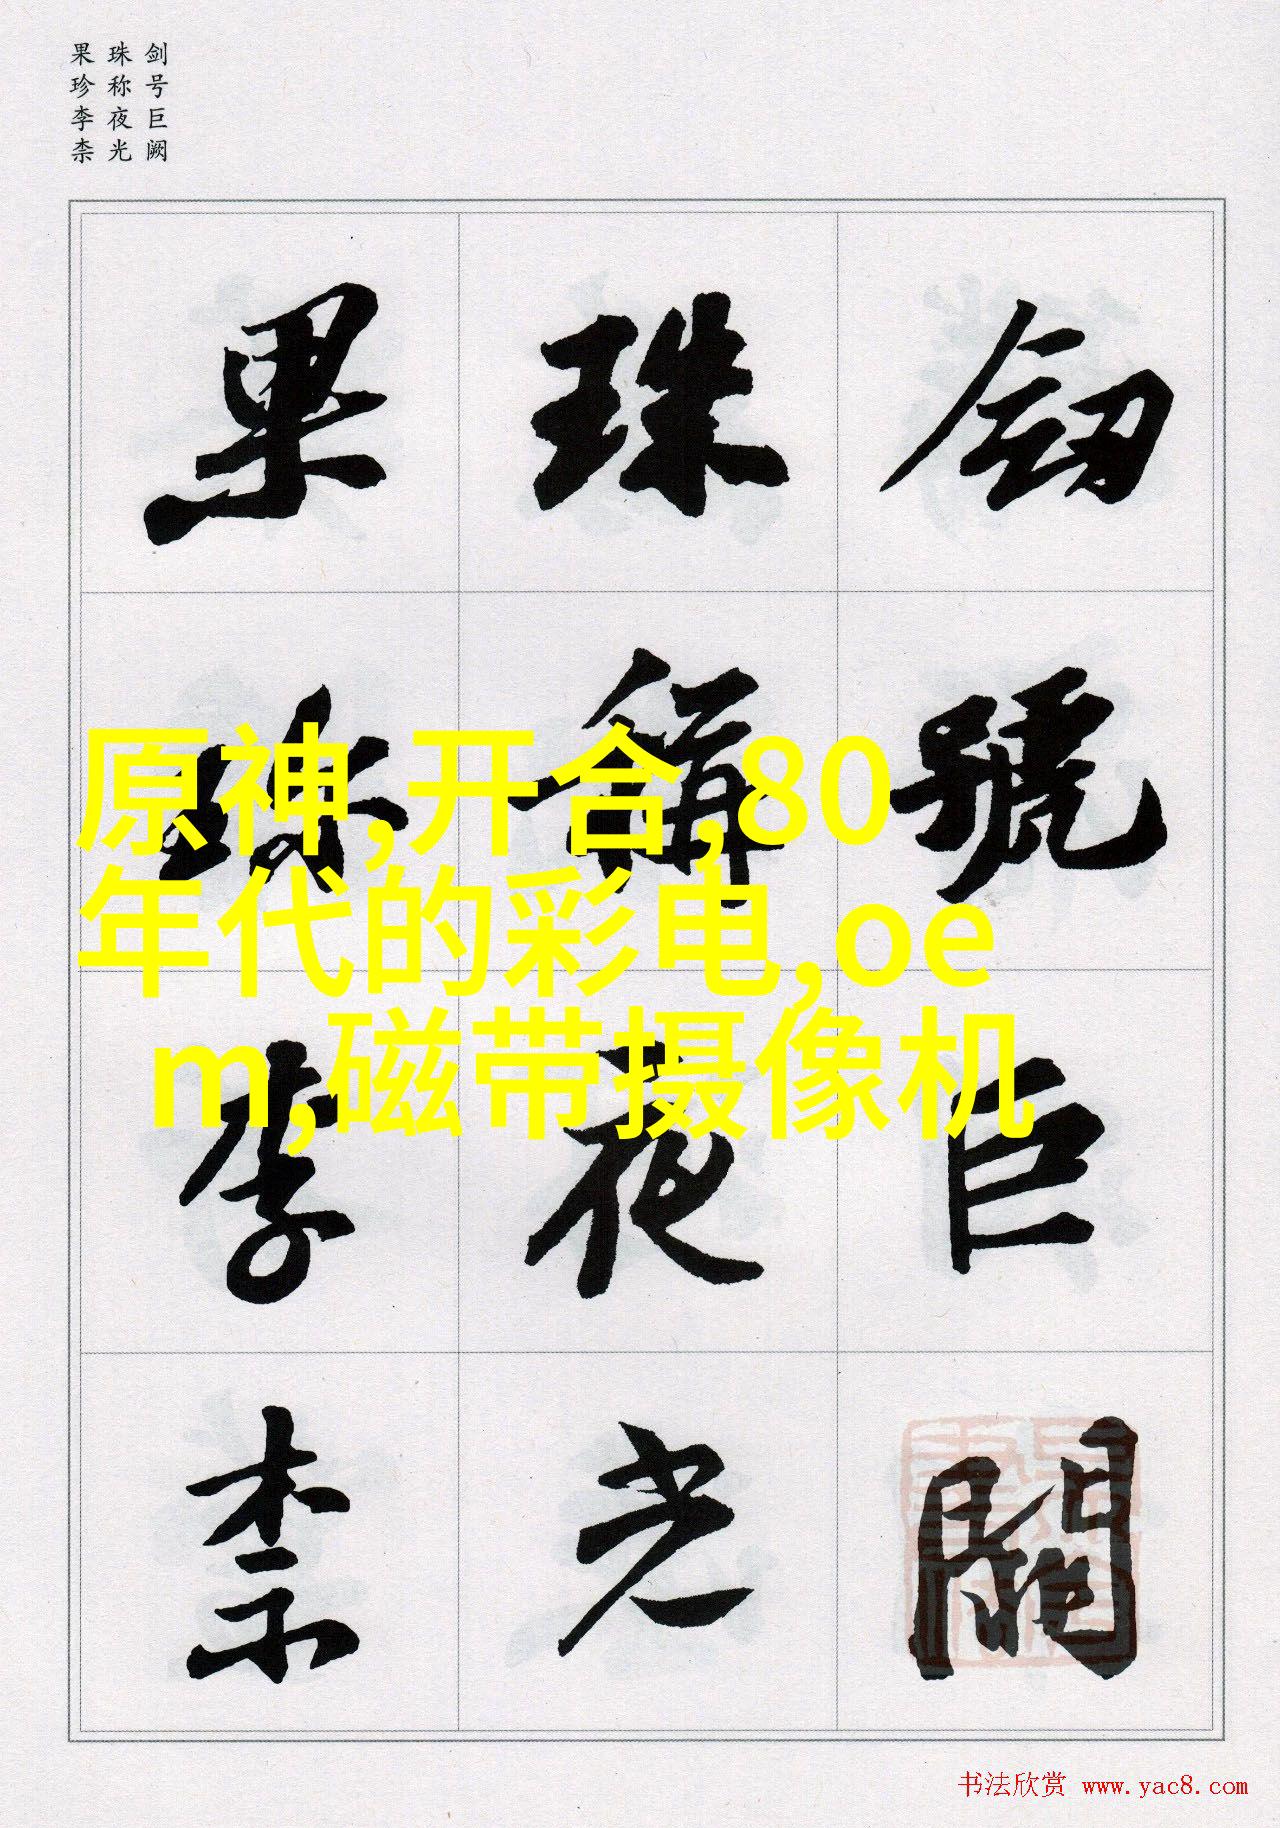 剑号巨阙
珠称夜光
果珍李柰
劒號巨闕
珠稱夜光
果珍李柰
原神,开合,80
年代的彩电,oe
m,磁带摄像机
书法欣赏 www.yac8.com